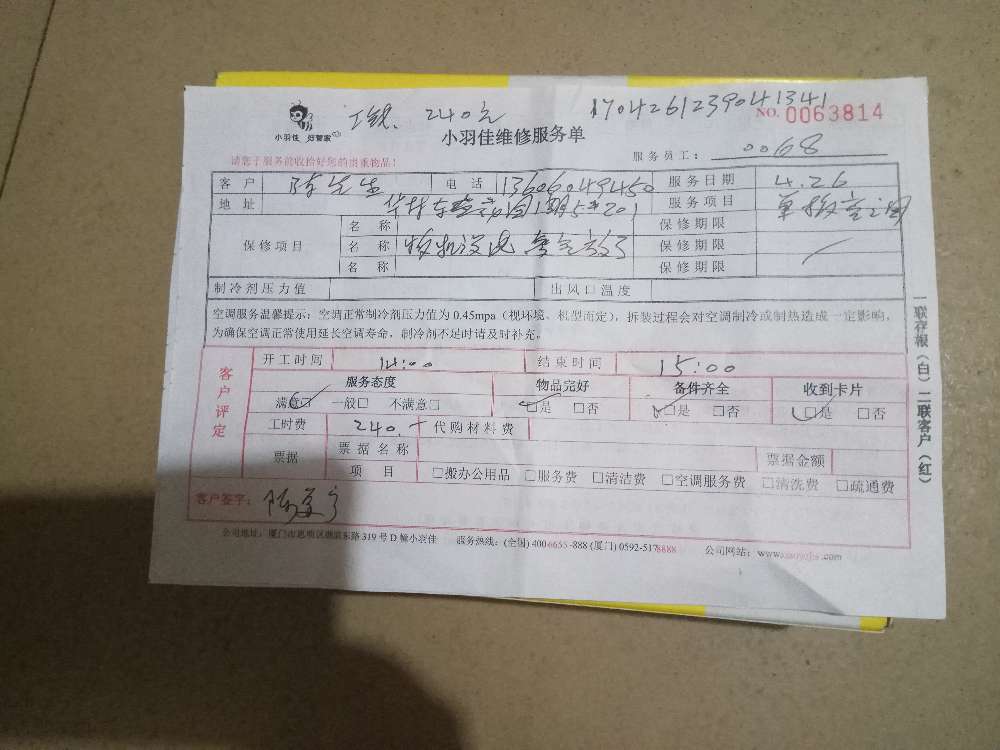 小羽佳 好管家
240元
1704261239041341
NO. 0063814
小羽佳维修服务单
请您于服务前收拾好您的贵重物品！
服务员工： 0068
客户 陈先生 电话 13606049450 服务日期 4.26
地址 1期5#201 服务项目
保修项目
名称 保修期限
名称 保修期限
名称 保修期限
制冷剂压力值 出风口温度
空调服务温馨提示：空调正常制冷剂压力值为0.45mpa（视环境、机型而定），拆装过程会对空调制冷或制热造成一定影响，
为确保空调正常使用延长空调寿命，制冷剂不足时请及时补充。
客户评定
开工时间 14:00 结束时间 15:00
服务态度 物品完好 备件齐全 收到卡片
满意□ 一般□ 不满意□ □是 □否 □是 □否 □是 □否
工时费 240.- 代购材料费
票据 票据名称 票据金额
项目 □搬办公用品 □服务费 □清洁费 □空调服务费 □清洗费 □疏通费
客户签字：
公司地址：厦门市思明区 东路319号D幢小羽佳 服务热线：(全国) 4006655-888 (厦门) 0592-5178888 公司网站：
一联存根（白）二联客户（红）